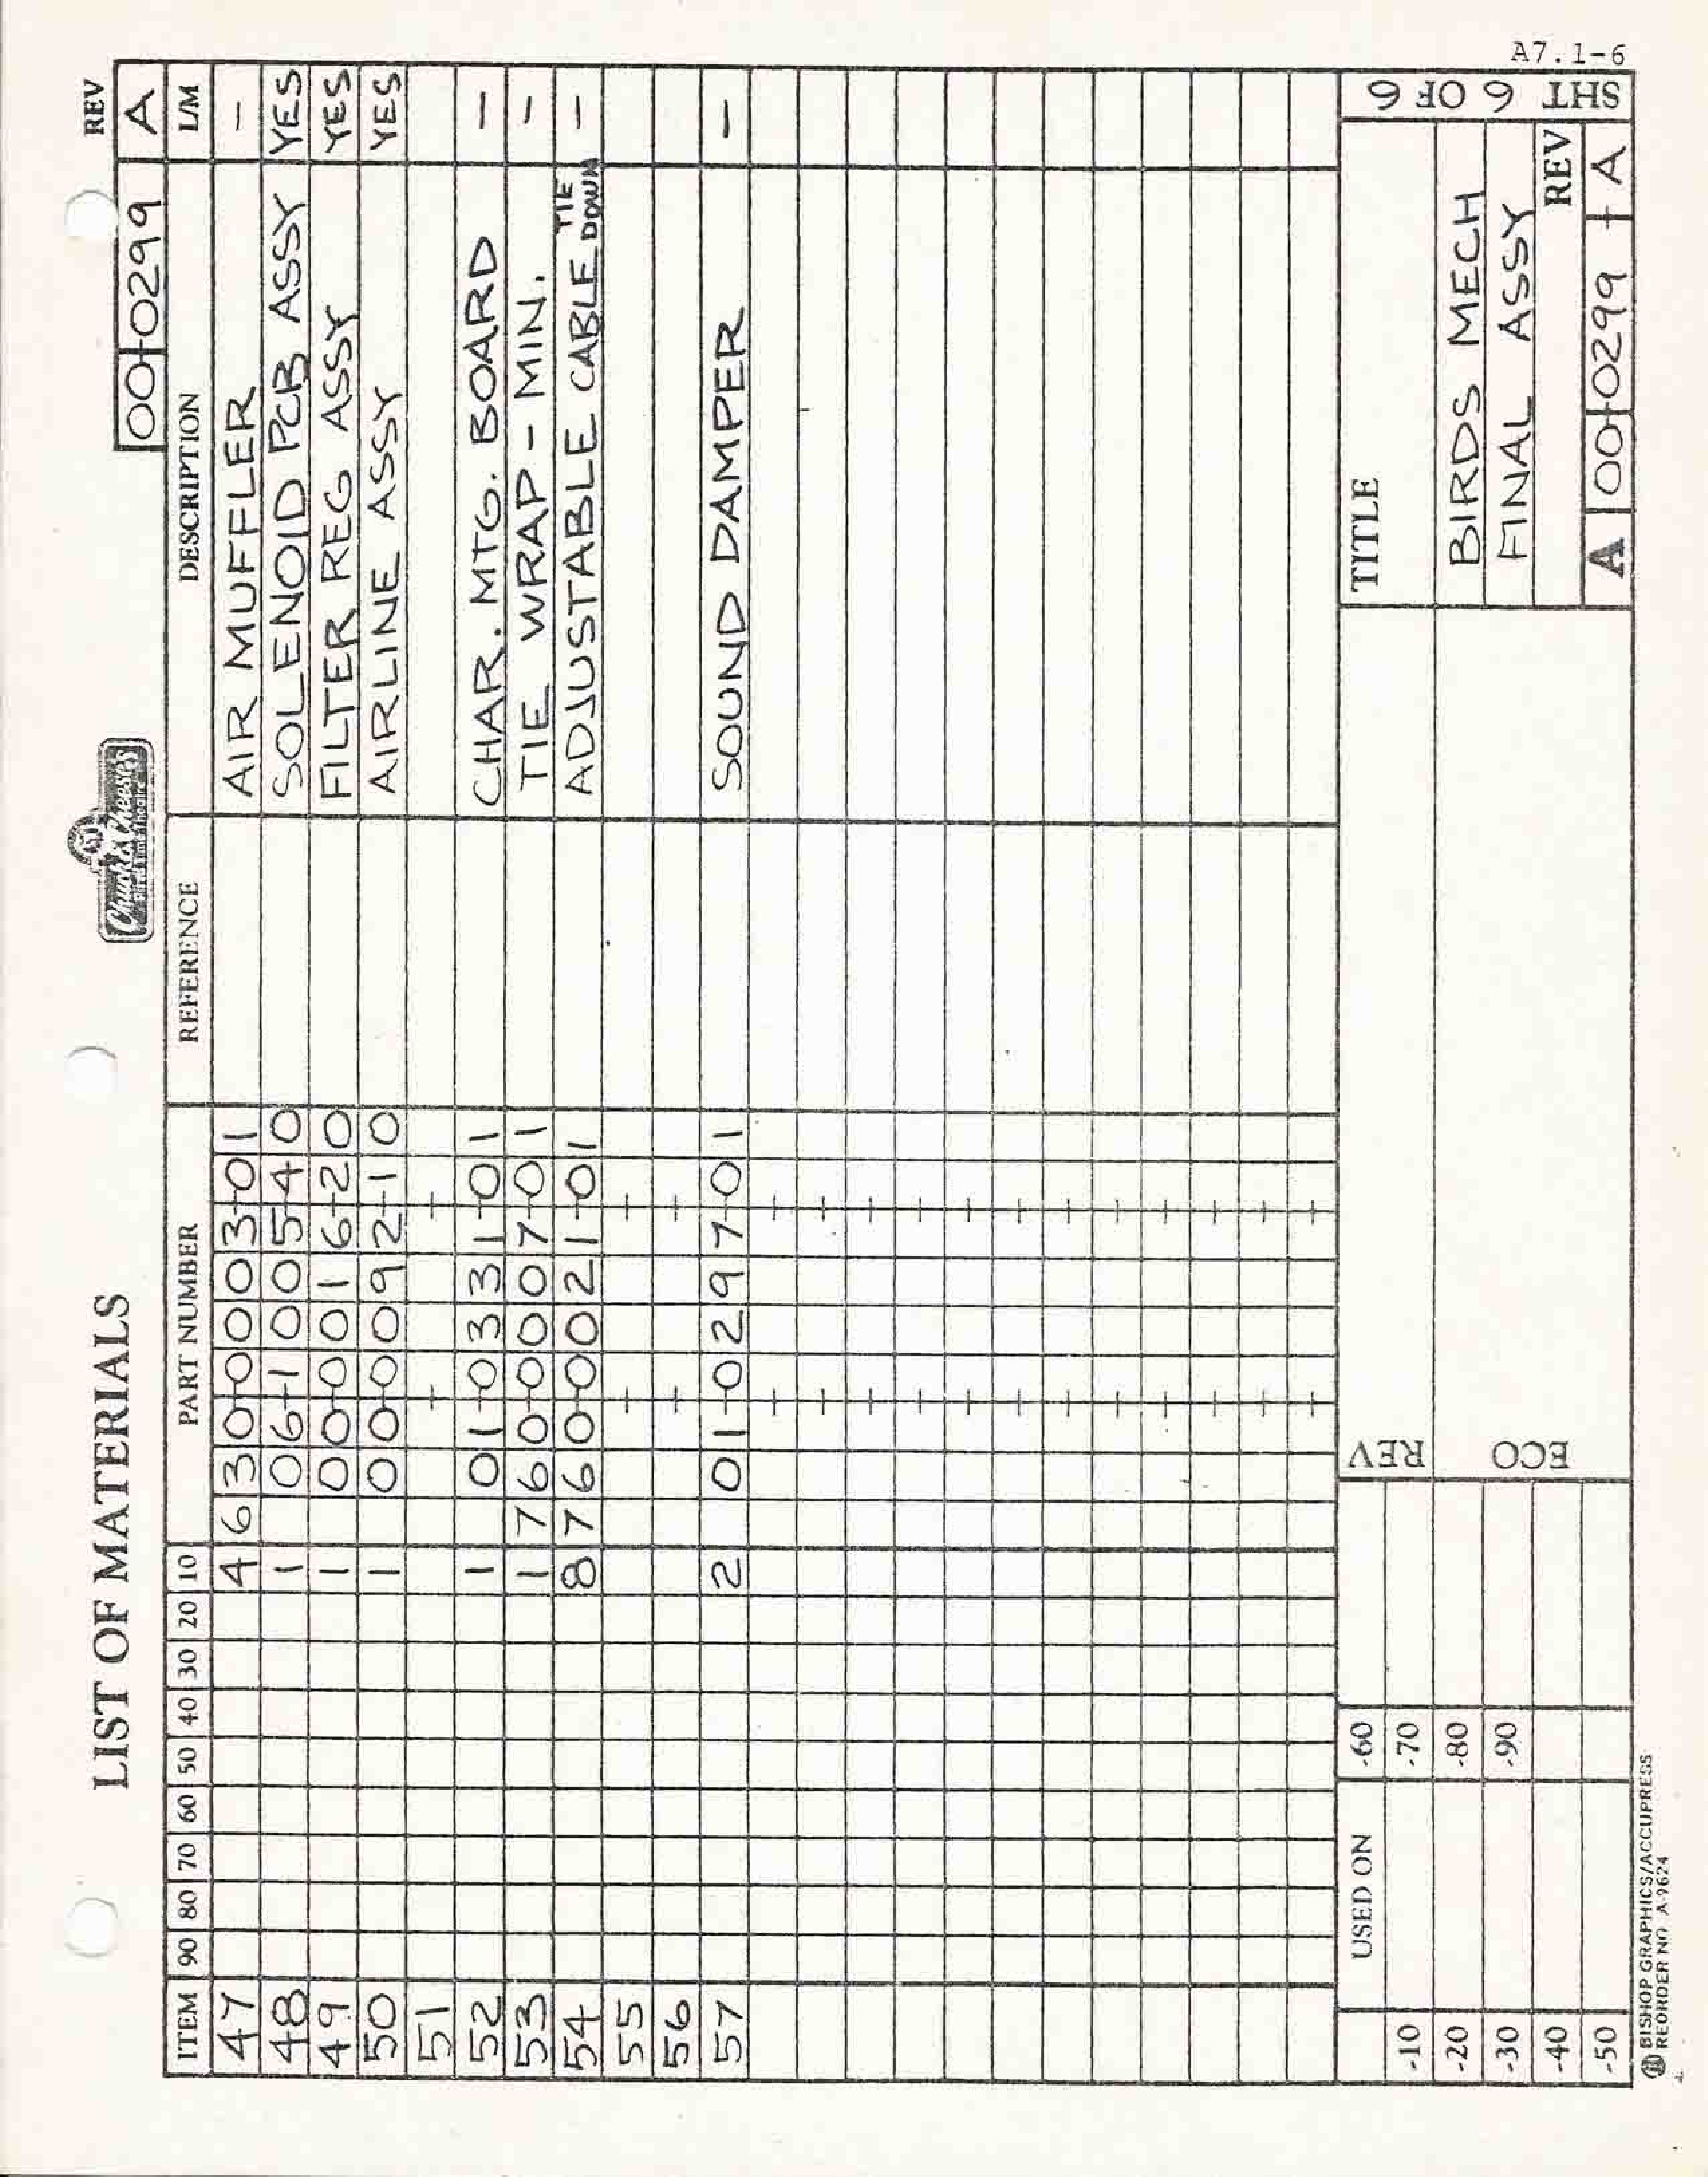 A7.1-6
LIST OF MATERIALS
Chuck E. Cheese's
REV
00-0299 A
ITEM 90 80 70 60 50 40 30 20 10 PART NUMBER REFERENCE DESCRIPTION L/M
47 4 630-0003-01 AIR MUFFLER -
48 1 06-1005-40 SOLENOID PCB ASSY YES
49 1 00-0016-20 FILTER REG ASSY YES
50 1 00-0092-10 AIRLINE ASSY YES
51
52 1 01-0331-01 CHAR. MTG. BOARD -
53 1 760-0007-01 TIE WRAP - MIN. -
54 8 760-0021-01 ADJUSTABLE CABLE TIE DOWN -
55
56
57 2 01-0297-01 SOUND DAMPER -
USED ON -60 REV TITLE SHT 6 OF 6
-10 -70
-20 -80 ECO BIRDS MECH
-30 -90 FINAL ASSY
-40 REV
-50 A 00-0299 - A
BISHOP GRAPHICS/ACCUPRESS
REORDER NO. A-9624